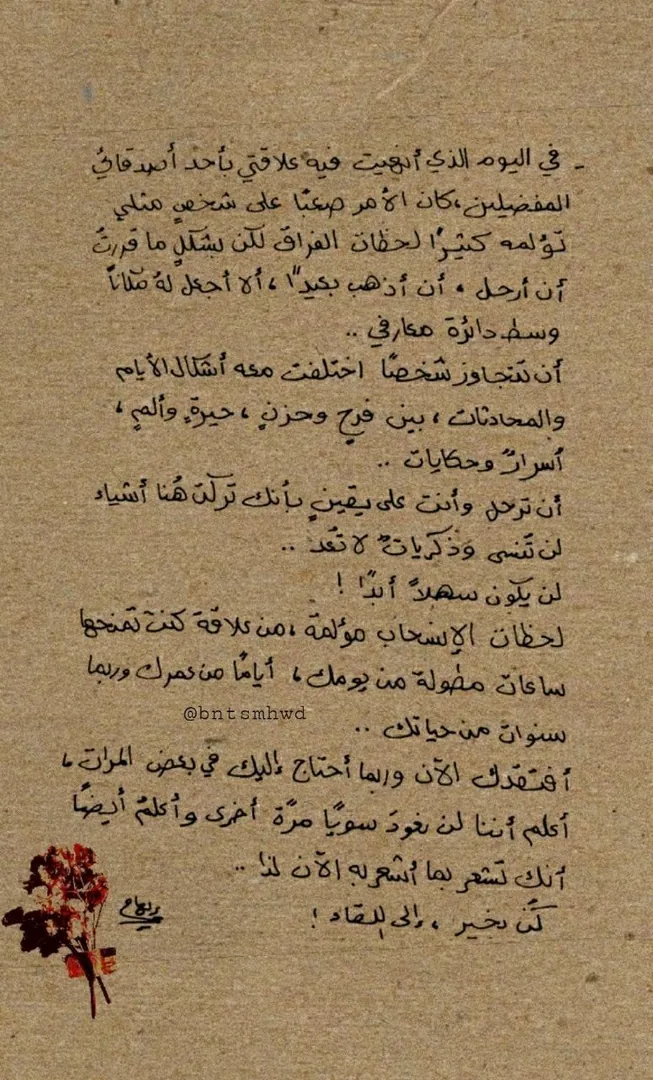 - في اليوم الذي أنهيت فيه علاقتي بأحد أصدقائي
المفضلين، كان الأمر صعبًا على شخصٍ مثلي
تؤلمه كثيرًا لحظات الفراق لكن بشكلٍ ما قررتُ
أن أرحل، أن أذهب بعيدًا، ألا أجعل لهُ مكانًا
وسط دائرة معارفي ..
أن تتجاوز شخصًا اختلفت معه أشكال الأيام
والمحادثات، بين فرحٍ وحزنٍ، حيرةٍ وألمٍ،
أسرارٌ وحكايات ..
أن ترحل وأنت على يقينٍ بأنك تركت هُنا أشياء
لن تُنسى وَذكرياتٌ لا تُعد ..
لن يكون سهلاً أبدًا !
لحظات الإنسحاب مؤلمة، من علاقة كنت تمنحها
ساعات مطولة من يومك، أيامًا من عمرك وربما
سنوات من حياتك ..
@bntsmhwd
أفتقدك الآن وربما أحتاج إليك في بعض المرات،
أعلم أننا لن نعودَ سويًا مرّة أخرى وأعلمُ أيضًا
أنك تشعر بما أشعر به الآن لذا ..
كُن بخير، إلى اللقاء !
ريهام